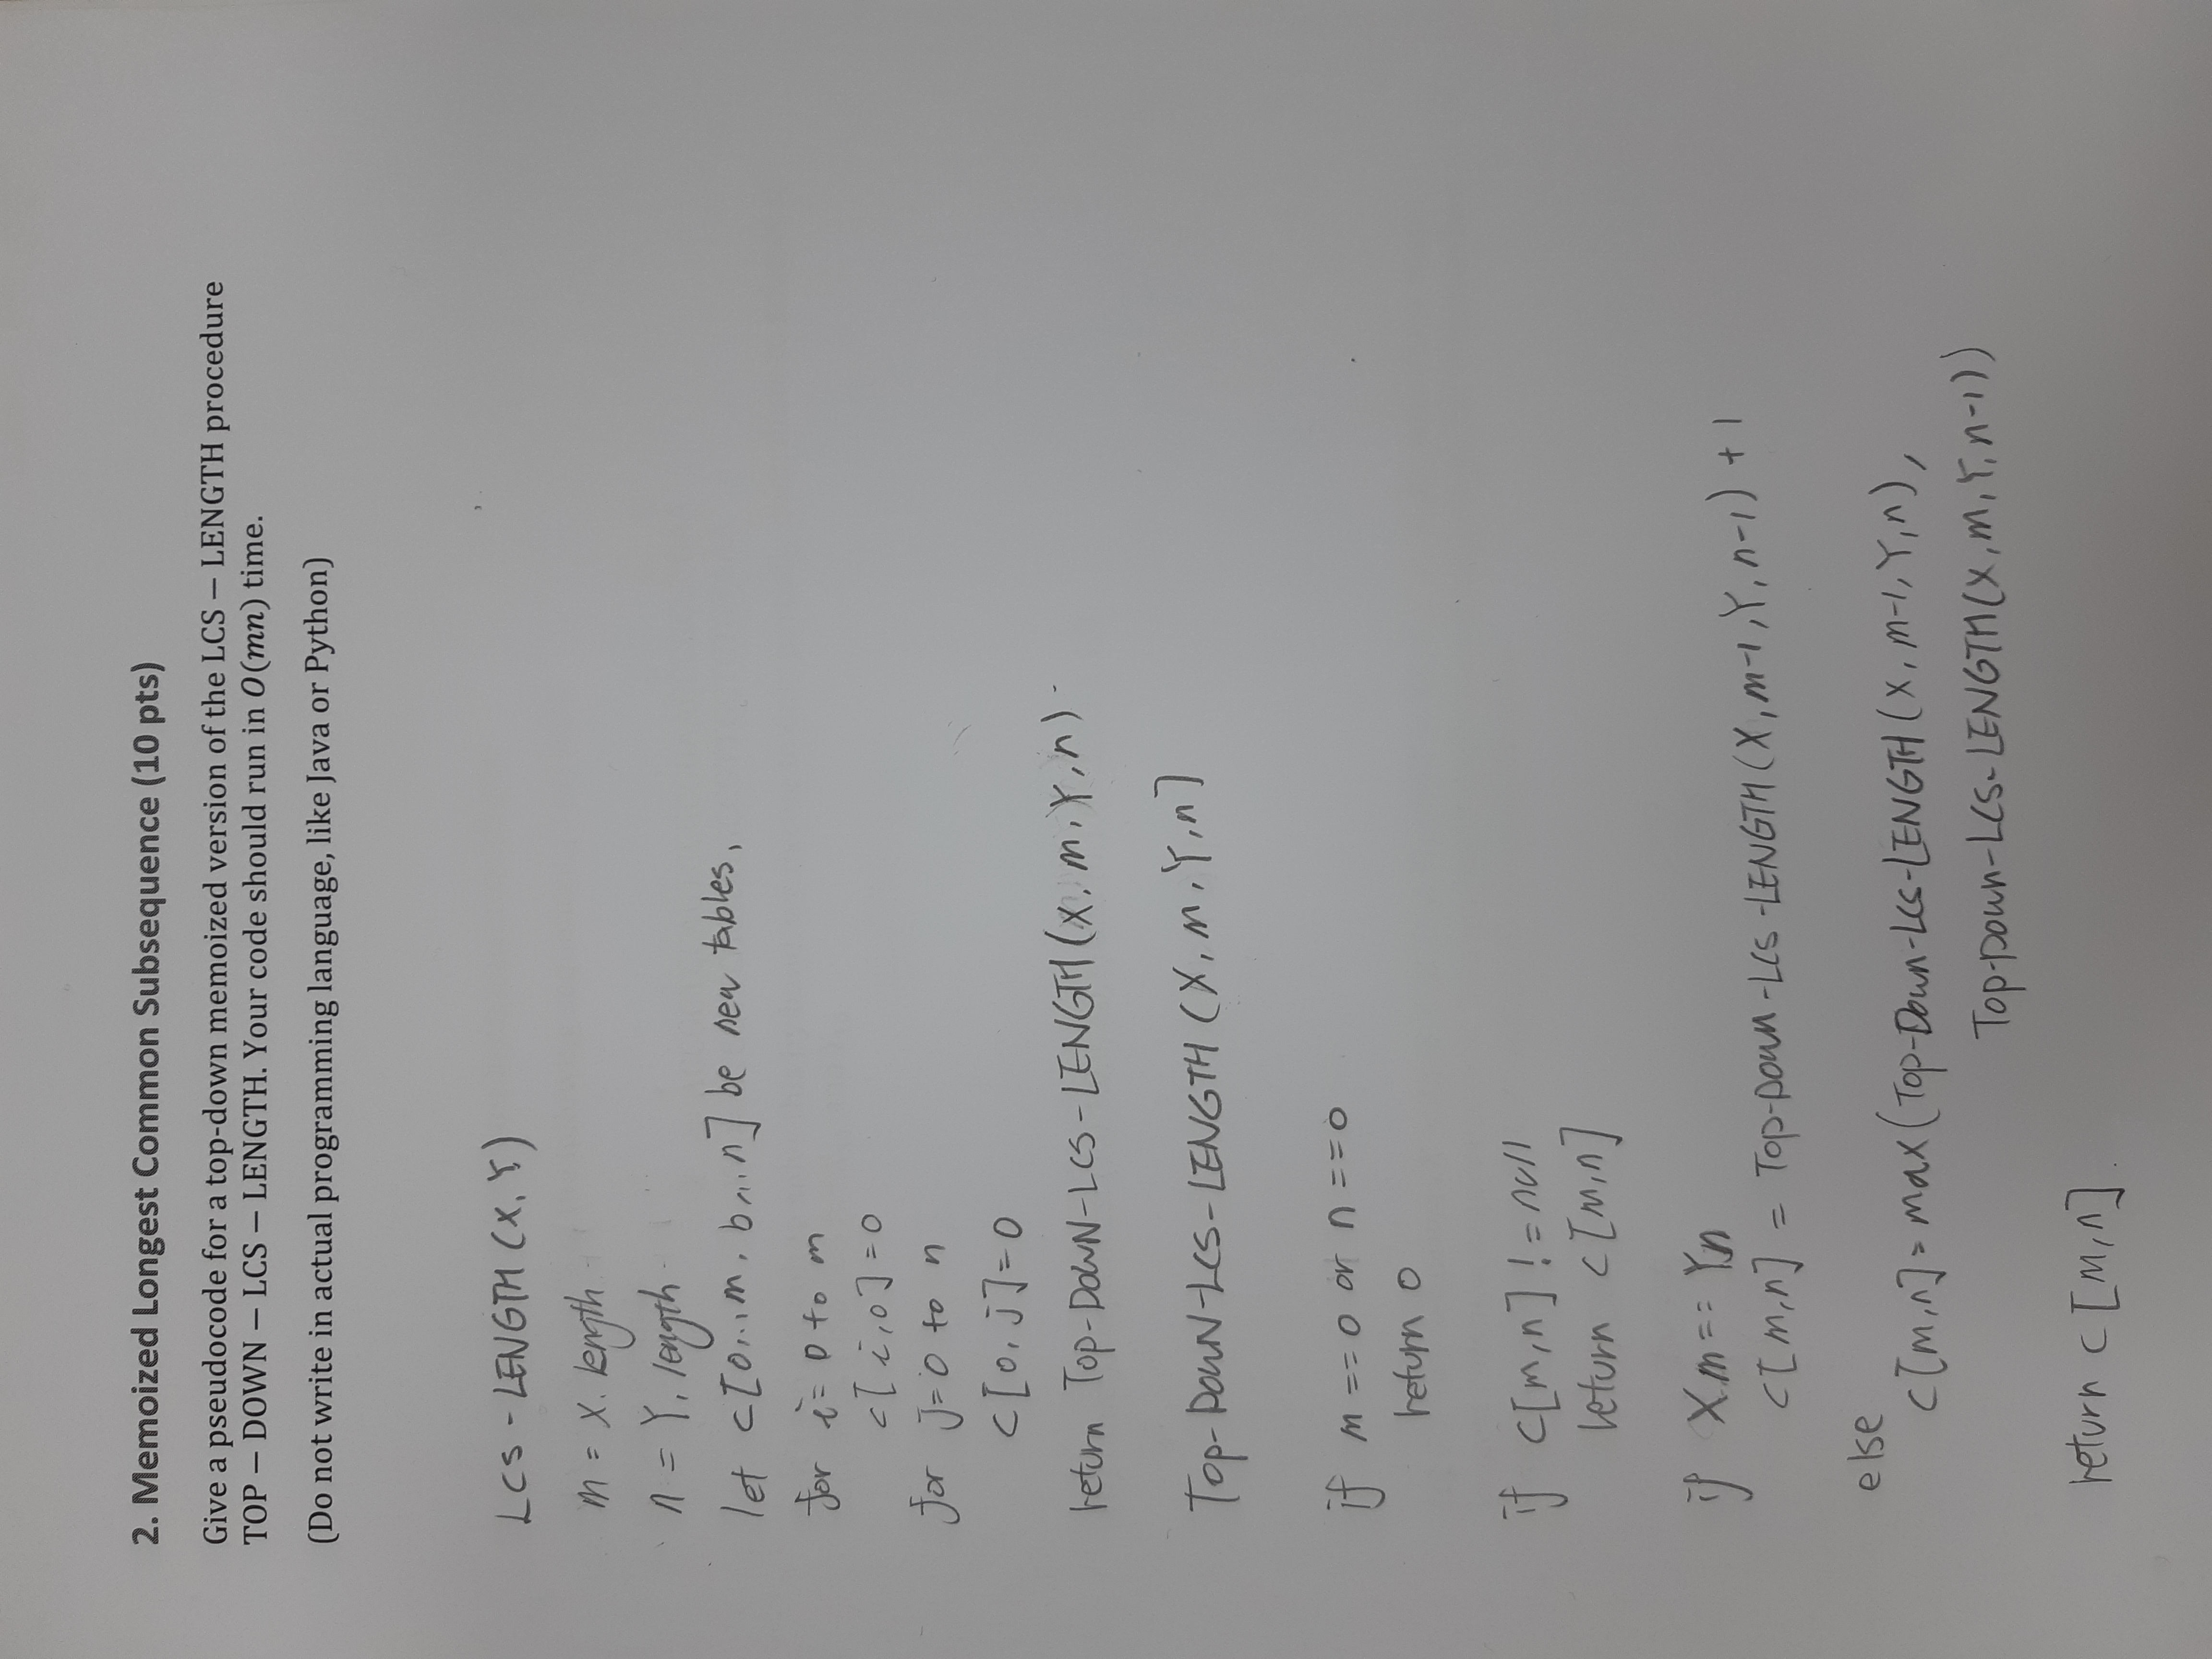 2. Memoized Longest Common Subsequence (10 pts)
Give a pseudocode for a top-down memoized version of the LCS − LENGTH procedure
TOP − DOWN − LCS − LENGTH. Your code should run in O(mn) time.
(Do not write in actual programming language, like Java or Python)
LCS - LENGTH (X, Y)
m = X. length
n = Y. length
let c[0...m, 0...n] be new tables,
for i = 0 to m
c[i,0] = 0
for J=0 to n
c[0, j] = 0
return TOP-DOWN-LCS-LENGTH (X, m, Y, n)
TOP-DOWN-LCS-LENGTH (X, m, Y, n]
if m == 0 or n == 0
return 0
if c[m,n] != null
return c[m,n]
if Xm == Yn
c[m,n] = TOP-DOWN-LCS-LENGTH (X, m-1, Y, n-1) + 1
else
c[m,n] = max (Top-Down-LCS-LENGTH (X, m-1, Y, n),
Top-Down-LCS-LENGTH (X, m, Y, n-1))
return c[m,n].